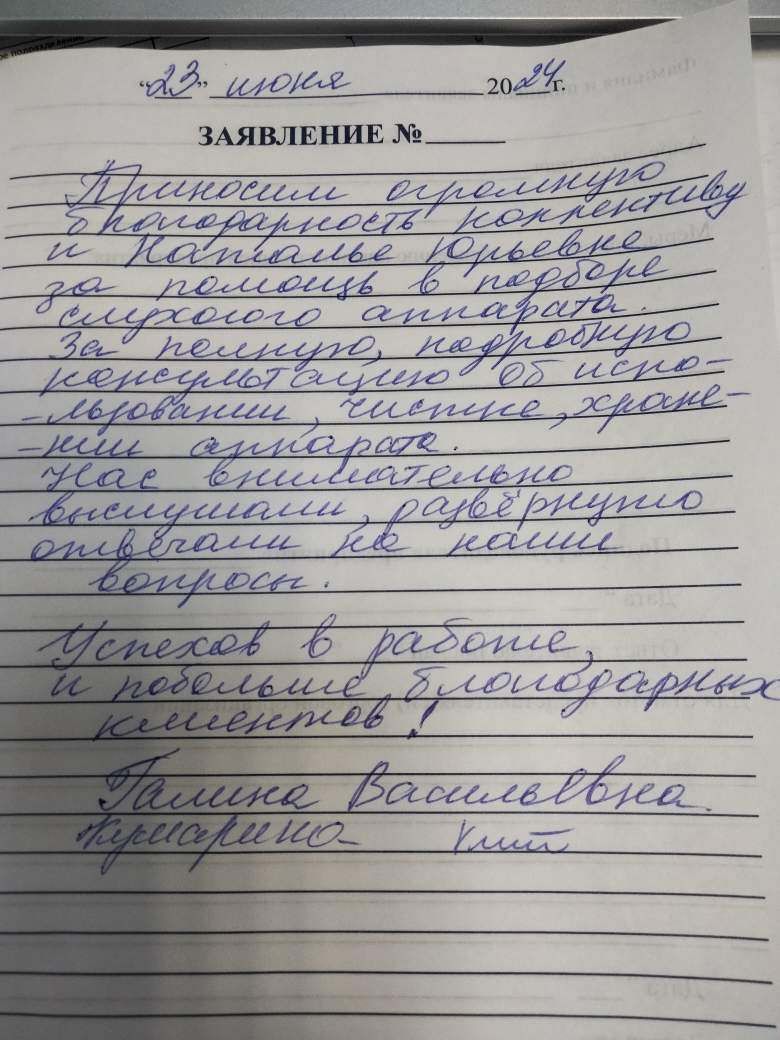 ое подразделение
“23” июня 2024 г.
ЗАЯВЛЕНИЕ №
Приносим огромную
благодарность коллективу
и Наталье Юрьевне
за помощь в подборе
слухового аппарата.
За полную, подробную
консультацию об испо-
-льзовании, чистке, хране-
-нии аппарата.
Нас внимательно
выслушали, развёрнуто
отвечали на наши
вопросы.
Успехов в работе,
и побольше благодарных
клиентов!
Галина Васильевна